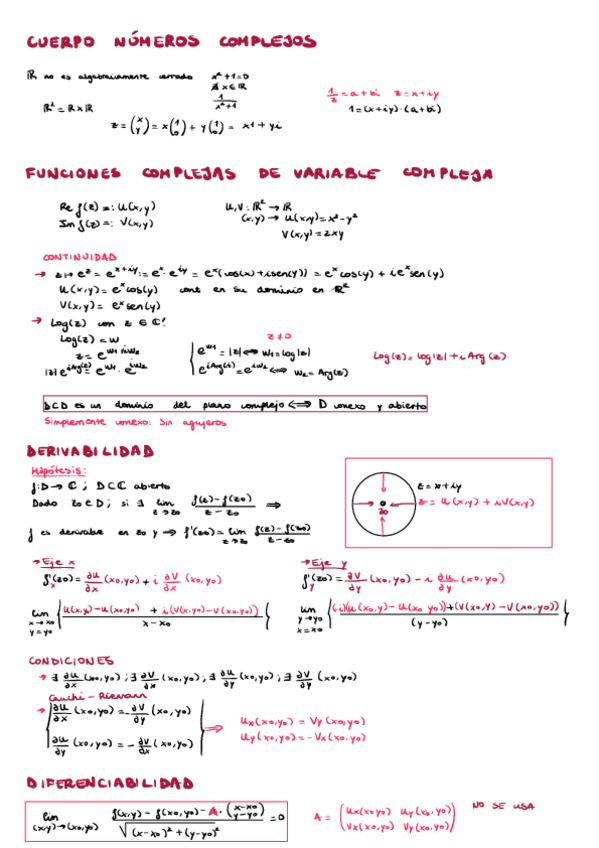 CUERPO NÚMEROS COMPLEJOS
ℝ no es algebraicamente cerrado x²+1=0
∄ x∈ℝ
1/(x²+1)
1/z = a+bi z=x+iy
ℝ² = ℝ×ℝ 1=(x+iy)·(a+bi)
z = (x y) = x(1 0) + y(1 0) = x1 + yi
FUNCIONES COMPLEJAS DE VARIABLE COMPLEJA
Re f(z)=: U(x,y) U,V: ℝ² → ℝ
Im f(z)=: V(x,y) (x,y) → U(x,y)=x²-y²
V(x,y)=2xy
CONTINUIDAD
→ z↦e^z = e^(x+iy) := e^x·e^(iy) = e^x(cos(x)+isen(y)) = e^x cos(y) + ie^x sen(y)
U(x,y)= e^x cos(y) cont en su dominio en ℝ²
V(x,y)= e^x sen(y)
→ Log(z) con z ∈ ℂ!
Log(z)=w z≠0
z = e^(w1+iw2) e^(w1) = |z| ⟺ w1=log|z| Log(z)=log|z|+iArg(z)
|z|e^(iArg(z)) = e^(w1)·e^(iw2) e^(iArg(z)) = e^(iw2) ⟺ w2=Arg(z)
D⊂D es un dominio del plano complejo ⟺ D conexo y abierto
Simplemente conexo: Sin agujeros
DERIVABILIDAD
Hipótesis:
f:D→ℂ ; D⊂ℂ abierto
Dado z0∈D; si ∃ lim z→z0 (f(z)-f(z0))/(z-z0) ⟹
z=x+iy
z=U(x,y)+iV(x,y)
z0
f es derivable en z0 y ⟹ f'(z0)=lim z→z0 (f(z)-f(z0))/(z-z0)
→ Eje x → Eje y
f'x(z0)=∂U/∂x (x0,y0)+i ∂V/∂x (x0,y0) f'y(z0)=∂V/∂y (x0,y0)-i ∂U/∂y (x0,y0)
lim x→x0 y=y0 {(U(x,y0)-U(x0,y0) + i(V(x,y0)-V(x0,y0)))/(x-x0)} lim y→y0 x=x0 {((-i)(U(x0,y)-U(x0,y0))+(V(x0,y)-V(x0,y0)))/(y-y0)}
CONDICIONES
→ ∃ ∂U/∂x (x0,y0) ; ∃ ∂V/∂x (x0,y0) ; ∃ ∂U/∂y (x0,y0) ; ∃ ∂V/∂y (x0,y0)
Cauchi-Riemann
→ ∂U/∂x (x0,y0) = ∂V/∂y (x0,y0) ⟹ Ux(x0,y0) = Vy(x0,y0)
∂U/∂y (x0,y0) = - ∂V/∂x (x0,y0) Uy(x0,y0)=-Vx(x0,y0)
DIFERENCIABILIDAD
lim (x,y)→(x0,y0) (f(x,y)-f(x0,y0)-A·(x-x0 y-y0))/√((x-x0)²+(y-y0)²) =0 A = (Ux(x0,y0) Uy(x0,y0) Vx(x0,y0) Vy(x0,y0)) NO SE USA